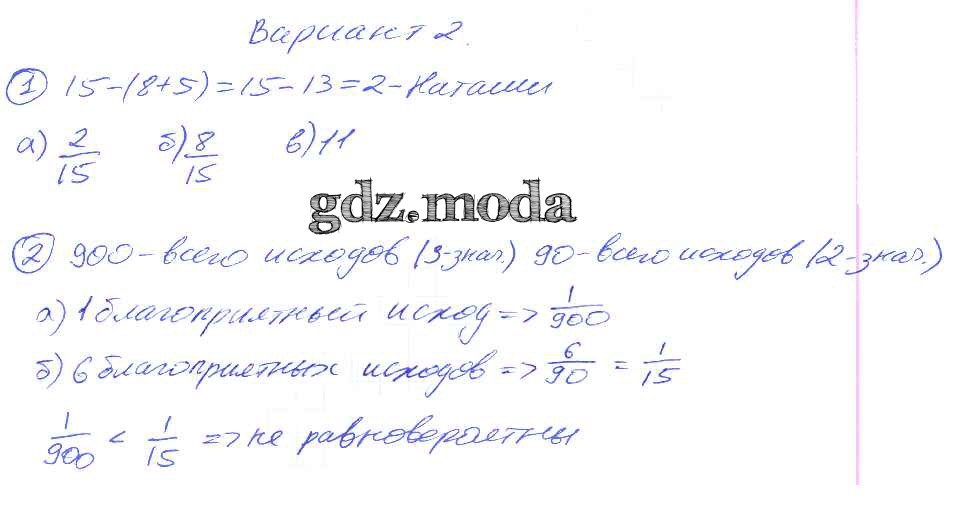 Вариант 2.
① 15-(8+5)=15-13=2-Наташи
а) 2/15 б) 8/15 в) 11
gdz.moda
② 900-всего исходов (3-знач.) 90-всего исходов (2-знач.)
а) 1 благоприятный исход => 1/900
б) 6 благоприятных исходов => 6/90 = 1/15
1/900 < 1/15 => не равновероятны